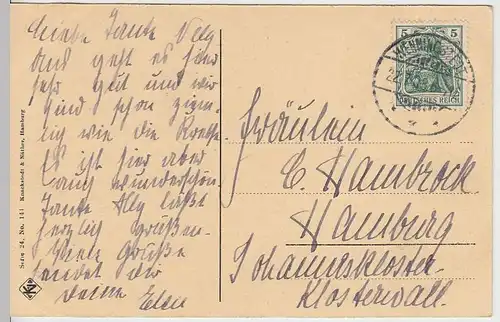 Liebe Tante Olg
Uns geht es hier
sehr gut und wir
sind schon ziem-
lig wie die Krebse.
Es ist hier aber
auch wunderschön.
Tante Aly läßt
herzlich grüßen.
Viele Grüße
sendet dir
deine Elen
Serie 24, No. 141 Knackstedt & Näther, Hamburg
5 5
DEUTSCHES REICH
Fräulein
C. Hambrock
Hamburg
Johanniskloster
Klosterwall.